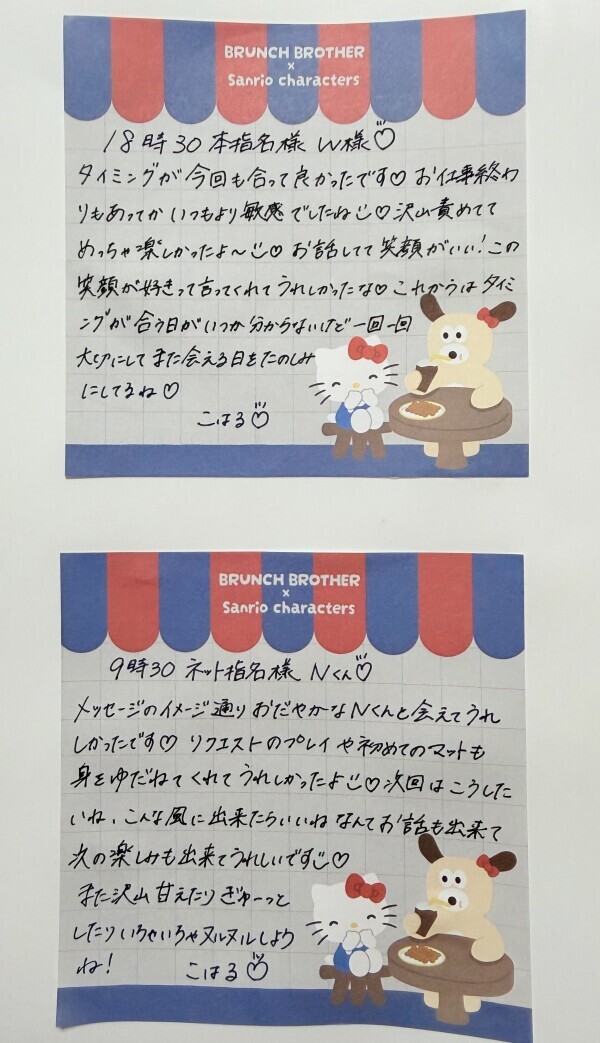 BRUNCH BROTHER
×
Sanrio characters
18時30 本指名様 W様♡
タイミングが今回も合って良かったです♡ お仕事終わ
りもあってか いつもより敏感でしたね♡ 沢山責めてて
めっちゃ楽しかったよ〜♡ お話してて笑顔がいい！この
笑顔が好きって言ってくれてうれしかったな♡ これからはタイミ
ングが合う日がいつか分からないけど一回一回
大切にしてまた会える日をたのしみ
にしてるね♡
こはる♡
BRUNCH BROTHER
×
Sanrio characters
9時30 ネット指名様 Nくん♡
メッセージのイメージ通りおだやかなNくんと会えてうれ
しかったです♡ リクエストのプレイや初めてのマットも
身をゆだねてくれてうれしかったよ♡ 次回はこうした
いね、こんな風に出来たらいいね なんてお話も出来て
次の楽しみも出来てうれしいです♡
また沢山 甘えたり ぎゅーっと
したり いちゃいちゃヌルヌルしよう
ね！
こはる♡